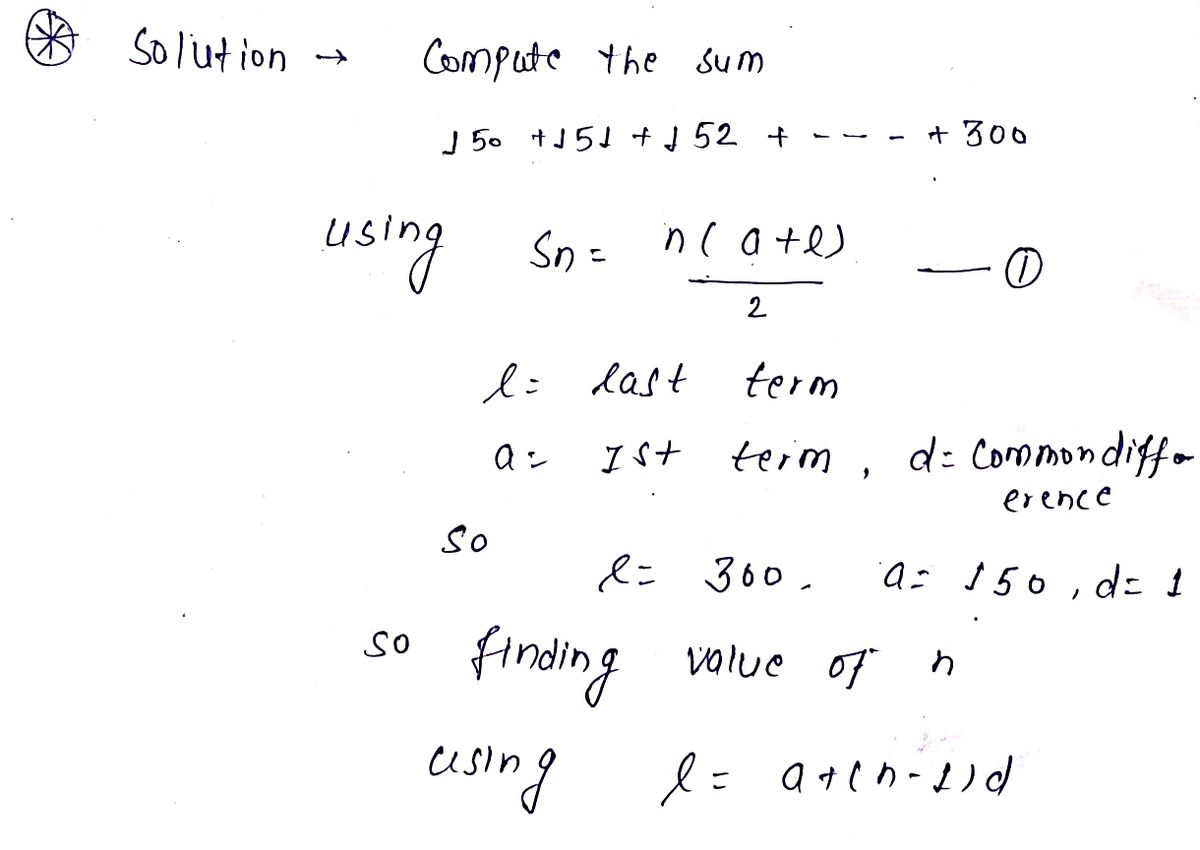 Solution → Compute the sum
150 + 151 + 152 + ---- + 300
using Sn = n(a+l)/2 — ①
l = last term
a = Ist term, d = Common diff
erence
so
l = 300. a = 150, d = 1
so finding value of n
using l = a+(n-1)d